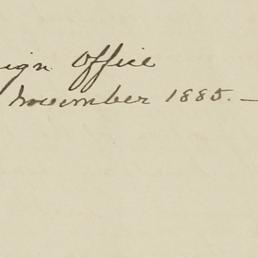 ign Office
November 1885. —